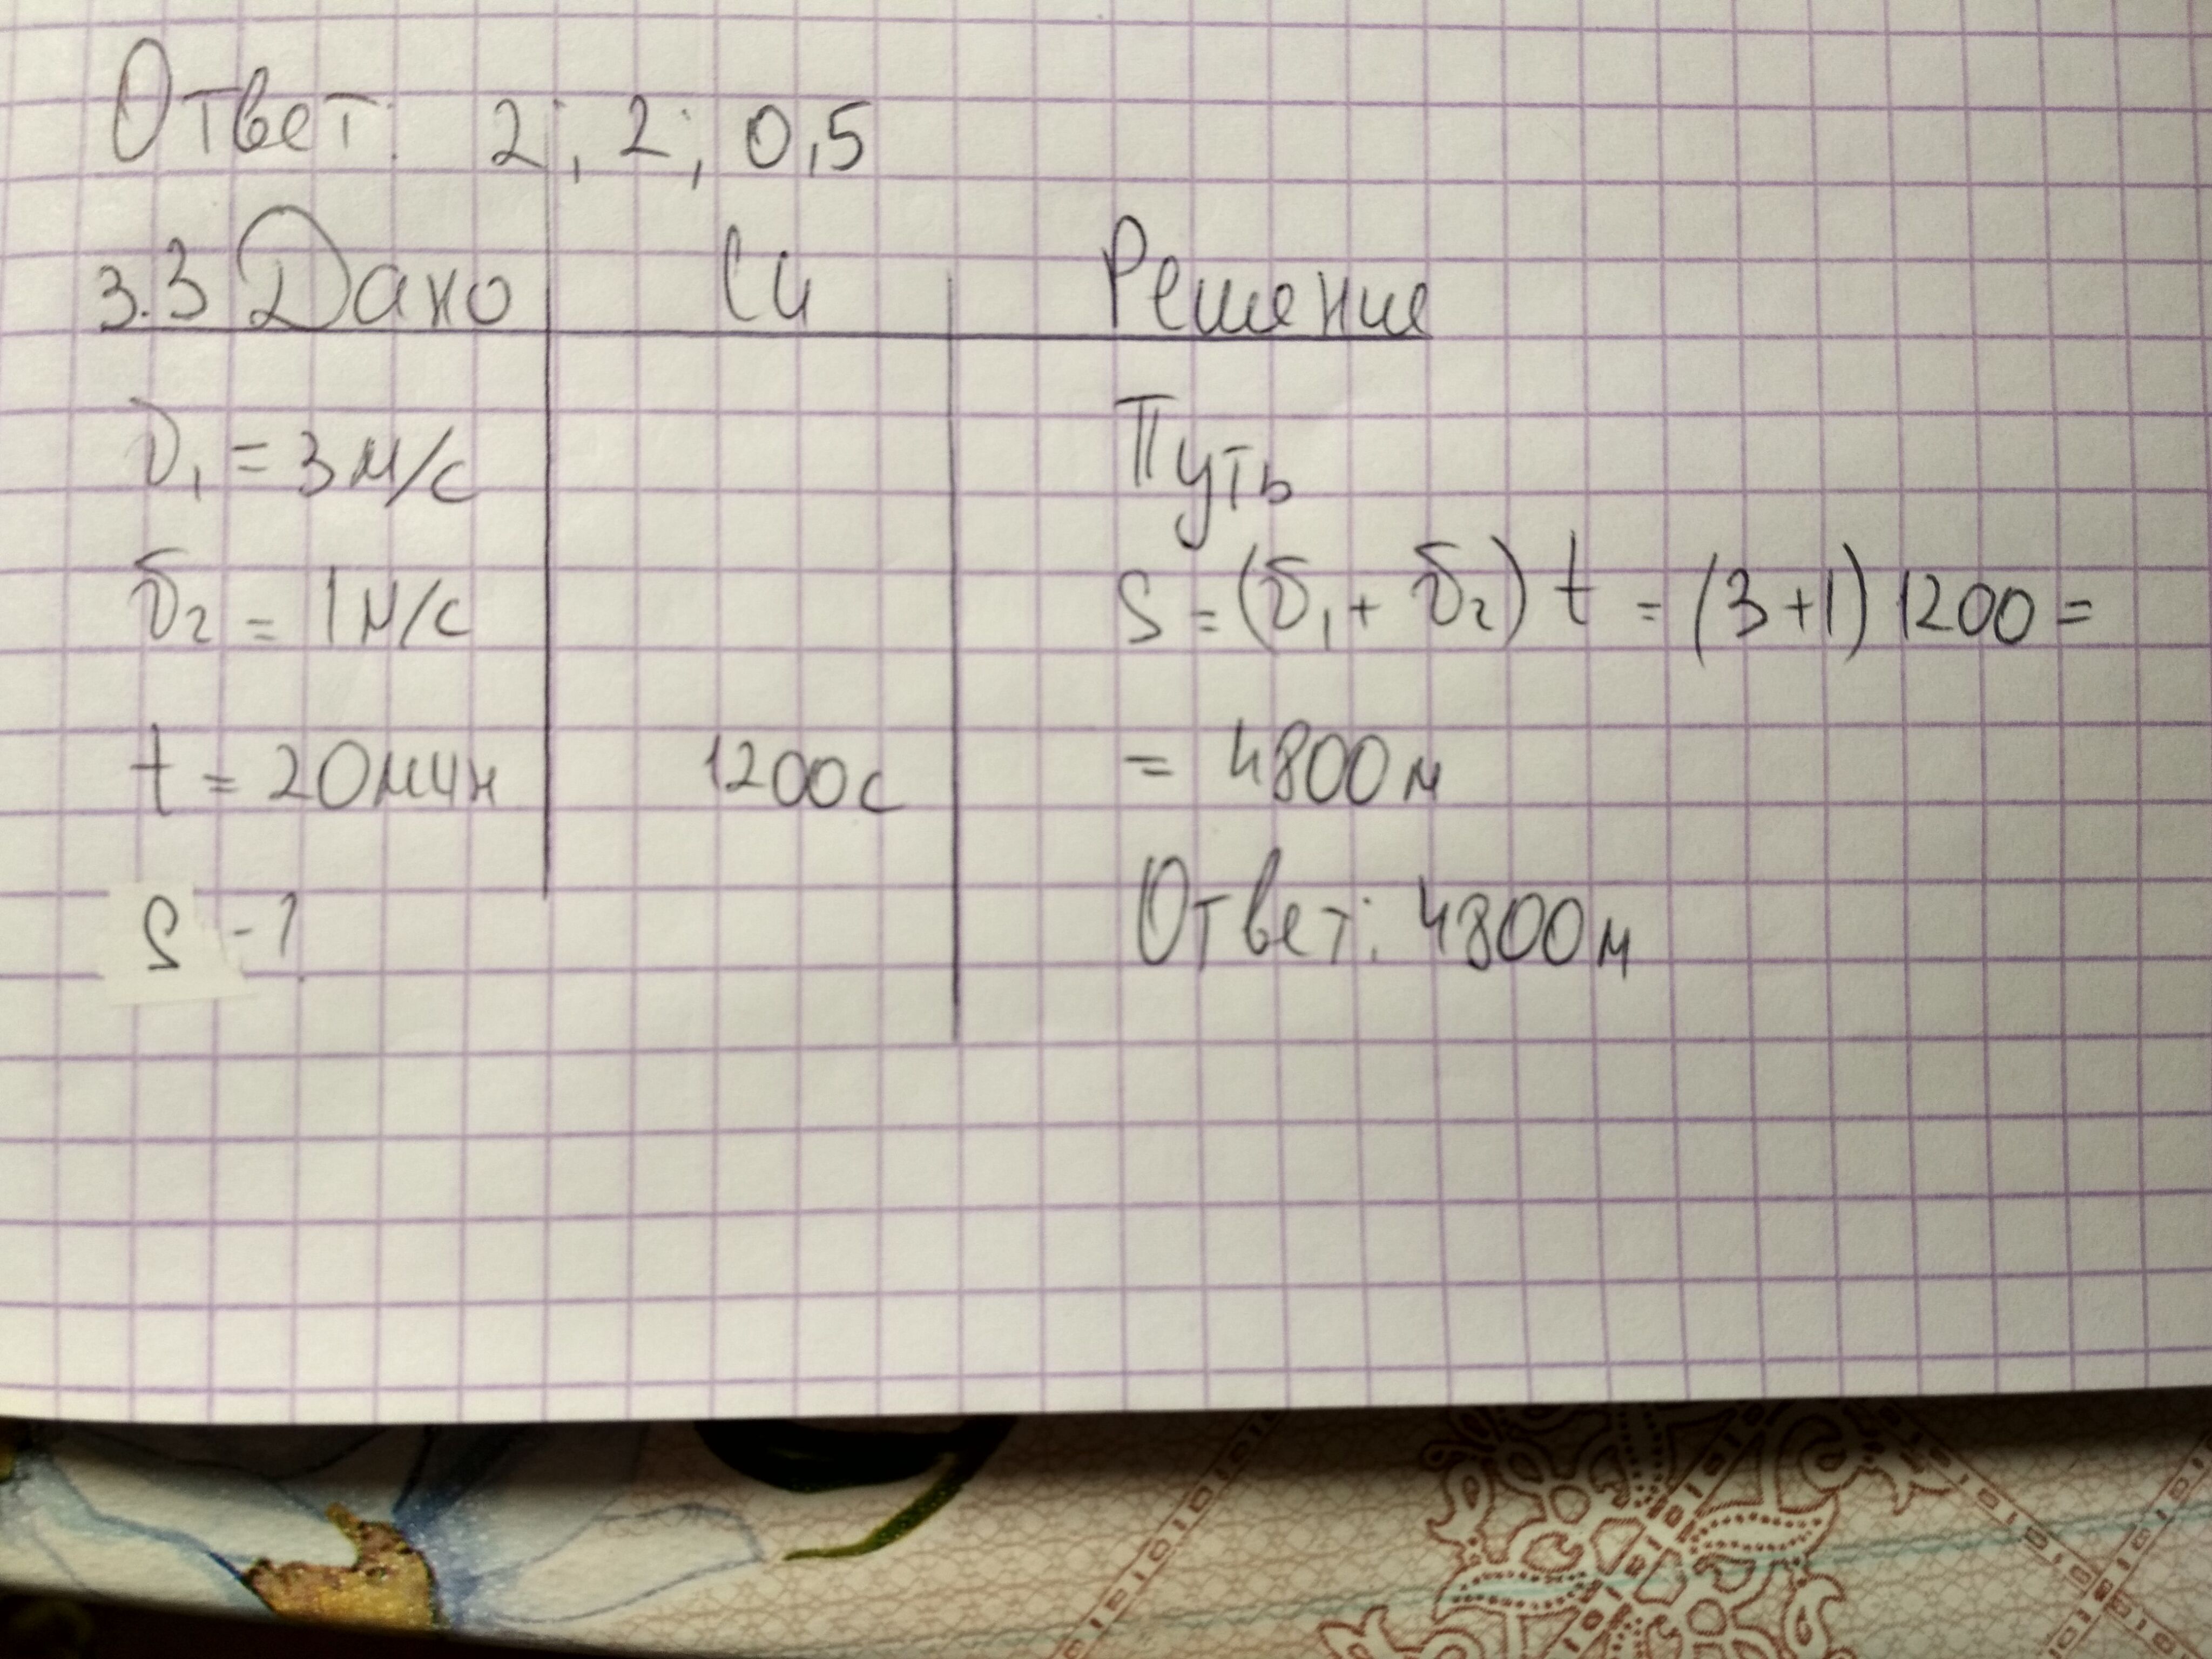 Ответ: 2; 2; 0,5
3.3 Дано Си Решение
υ₁ = 3 м/с
υ₂ = 1 м/с
t = 20 мин 1200 с
S - ?
Путь
S = (υ₁ + υ₂) t = (3+1) 1200 =
= 4800 м
Ответ: 4800 м